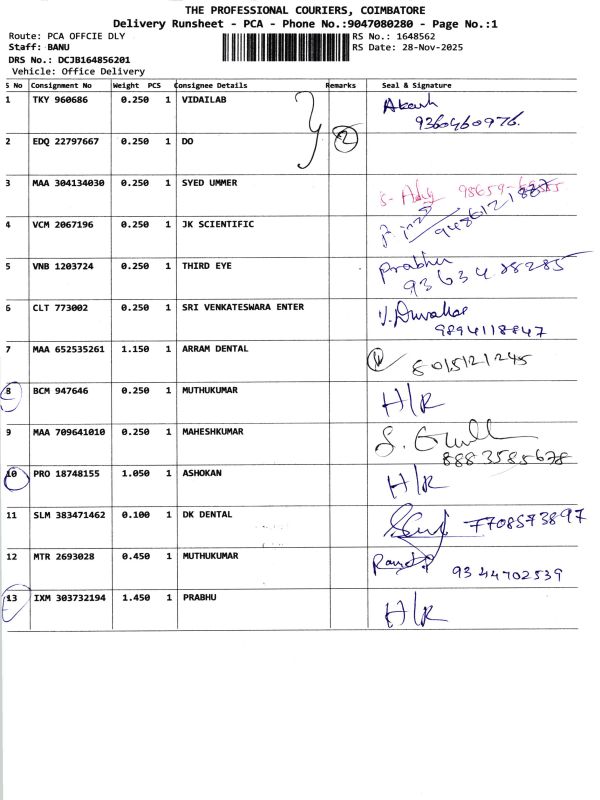 THE PROFESSIONAL COURIERS, COIMBATORE
Delivery Runsheet - PCA - Phone No.:9047080280 - Page No.:1
Route: PCA OFFCIE DLY RS No.: 1648562
Staff: BANU RS Date: 28-Nov-2025
DRS No.: DCJB164856201
Vehicle: Office Delivery
S No Consignment No Weight PCS Consignee Details Remarks Seal & Signature
1 TKY 960686 0.250 1 VIDAILAB Akash
9360460976.
2 EDQ 22797667 0.250 1 DO 2
3 MAA 304134030 0.250 1 SYED UMMER
4 VCM 2067196 0.250 1 JK SCIENTIFIC
5 VNB 1203724 0.250 1 THIRD EYE Prabhu
6 CLT 773002 0.250 1 SRI VENKATESWARA ENTER
9894118847
7 MAA 652535261 1.150 1 ARRAM DENTAL 8015121245
8 BCM 947646 0.250 1 MUTHUKUMAR H/R
9 MAA 709641010 0.250 1 MAHESHKUMAR
8883585678
10 PRO 18748155 1.050 1 ASHOKAN H/R
11 SLM 383471462 0.100 1 DK DENTAL 7708573897
12 MTR 2693028 0.450 1 MUTHUKUMAR
9344702539
13 IXM 303732194 1.450 1 PRABHU H/R